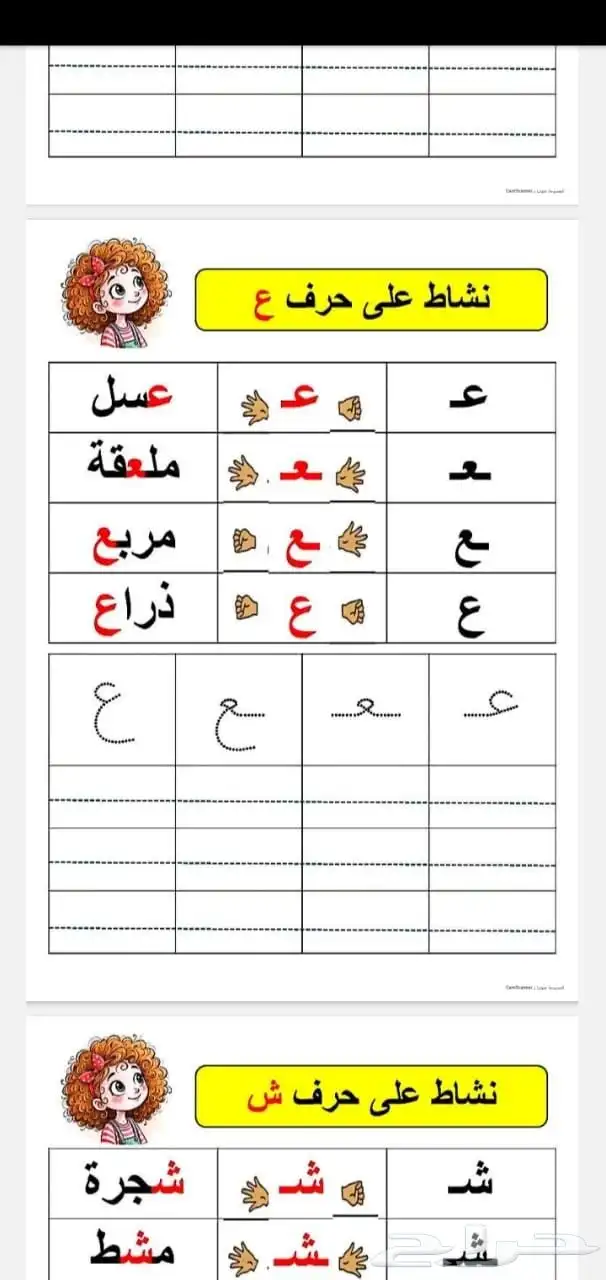 نشاط على حرف ع
عـ عـ عسل
ـعـ ـعـ ملعقة
ـع ـع مربع
ع ع ذراع
عـ ـعـ ـع ع
نشاط على حرف ش
شـ شـ شجرة
ـشـ ـشـ مشط
حراج